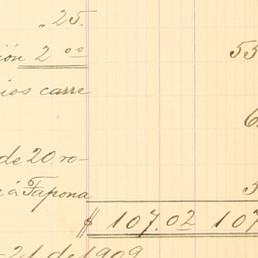 „25.
ión 2 00
53
cios carre
6
de 20. ro-
á Tapona
3
$ 107.02 107
21 de 1909